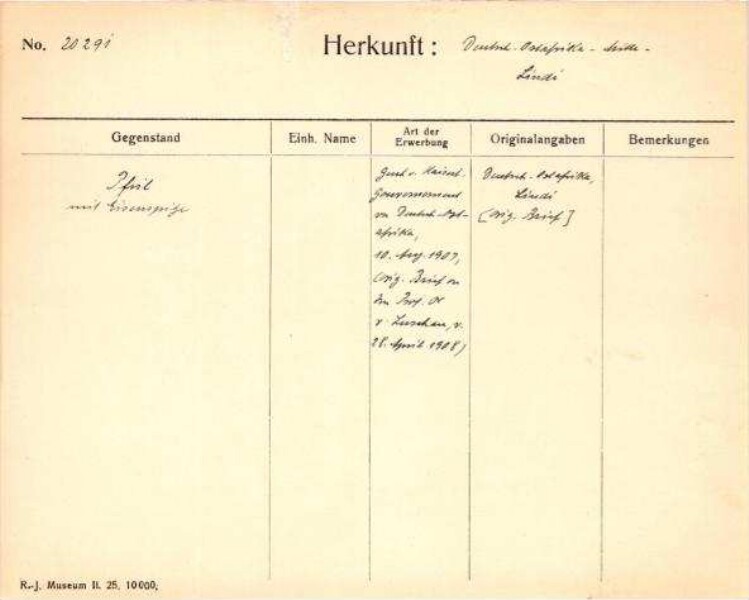 No. 20291
Herkunft: Deutsch-Ostafrika -
Lindi
Gegenstand
Einh. Name
Art der Erwerbung
Originalangaben
Bemerkungen
Pfeil
mit Eisenspitze
v. Kaiserl.
Gouvernement
von Deutsch-Ost-
afrika,
10. Aug. 1907,
(Orig. Brief
Prof. Dr
v. Luschan, v.
28. April 1908)
Deutsch-Ostafrika,
Lindi
[Orig. Brief]
R.-J. Museum II. 25. 10000.